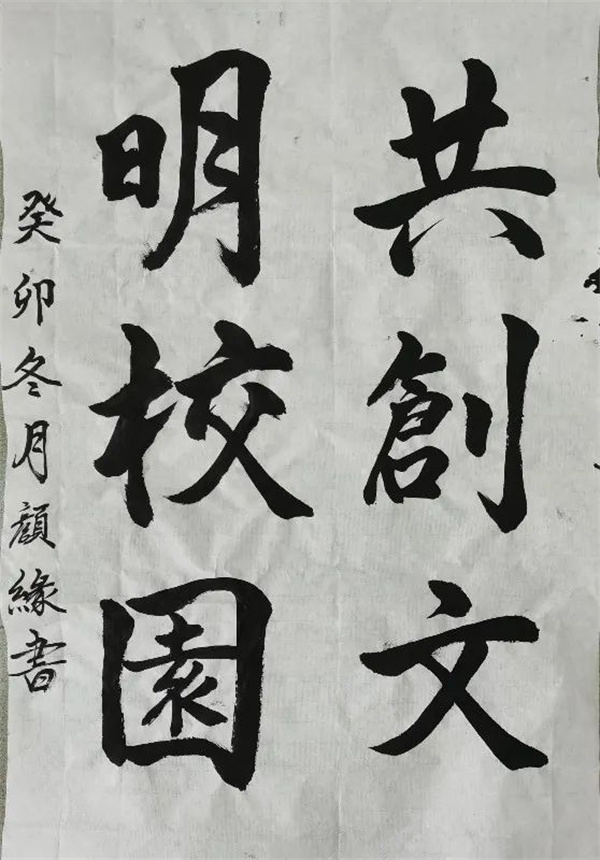 共創文
明校園
癸卯冬月顏緣書